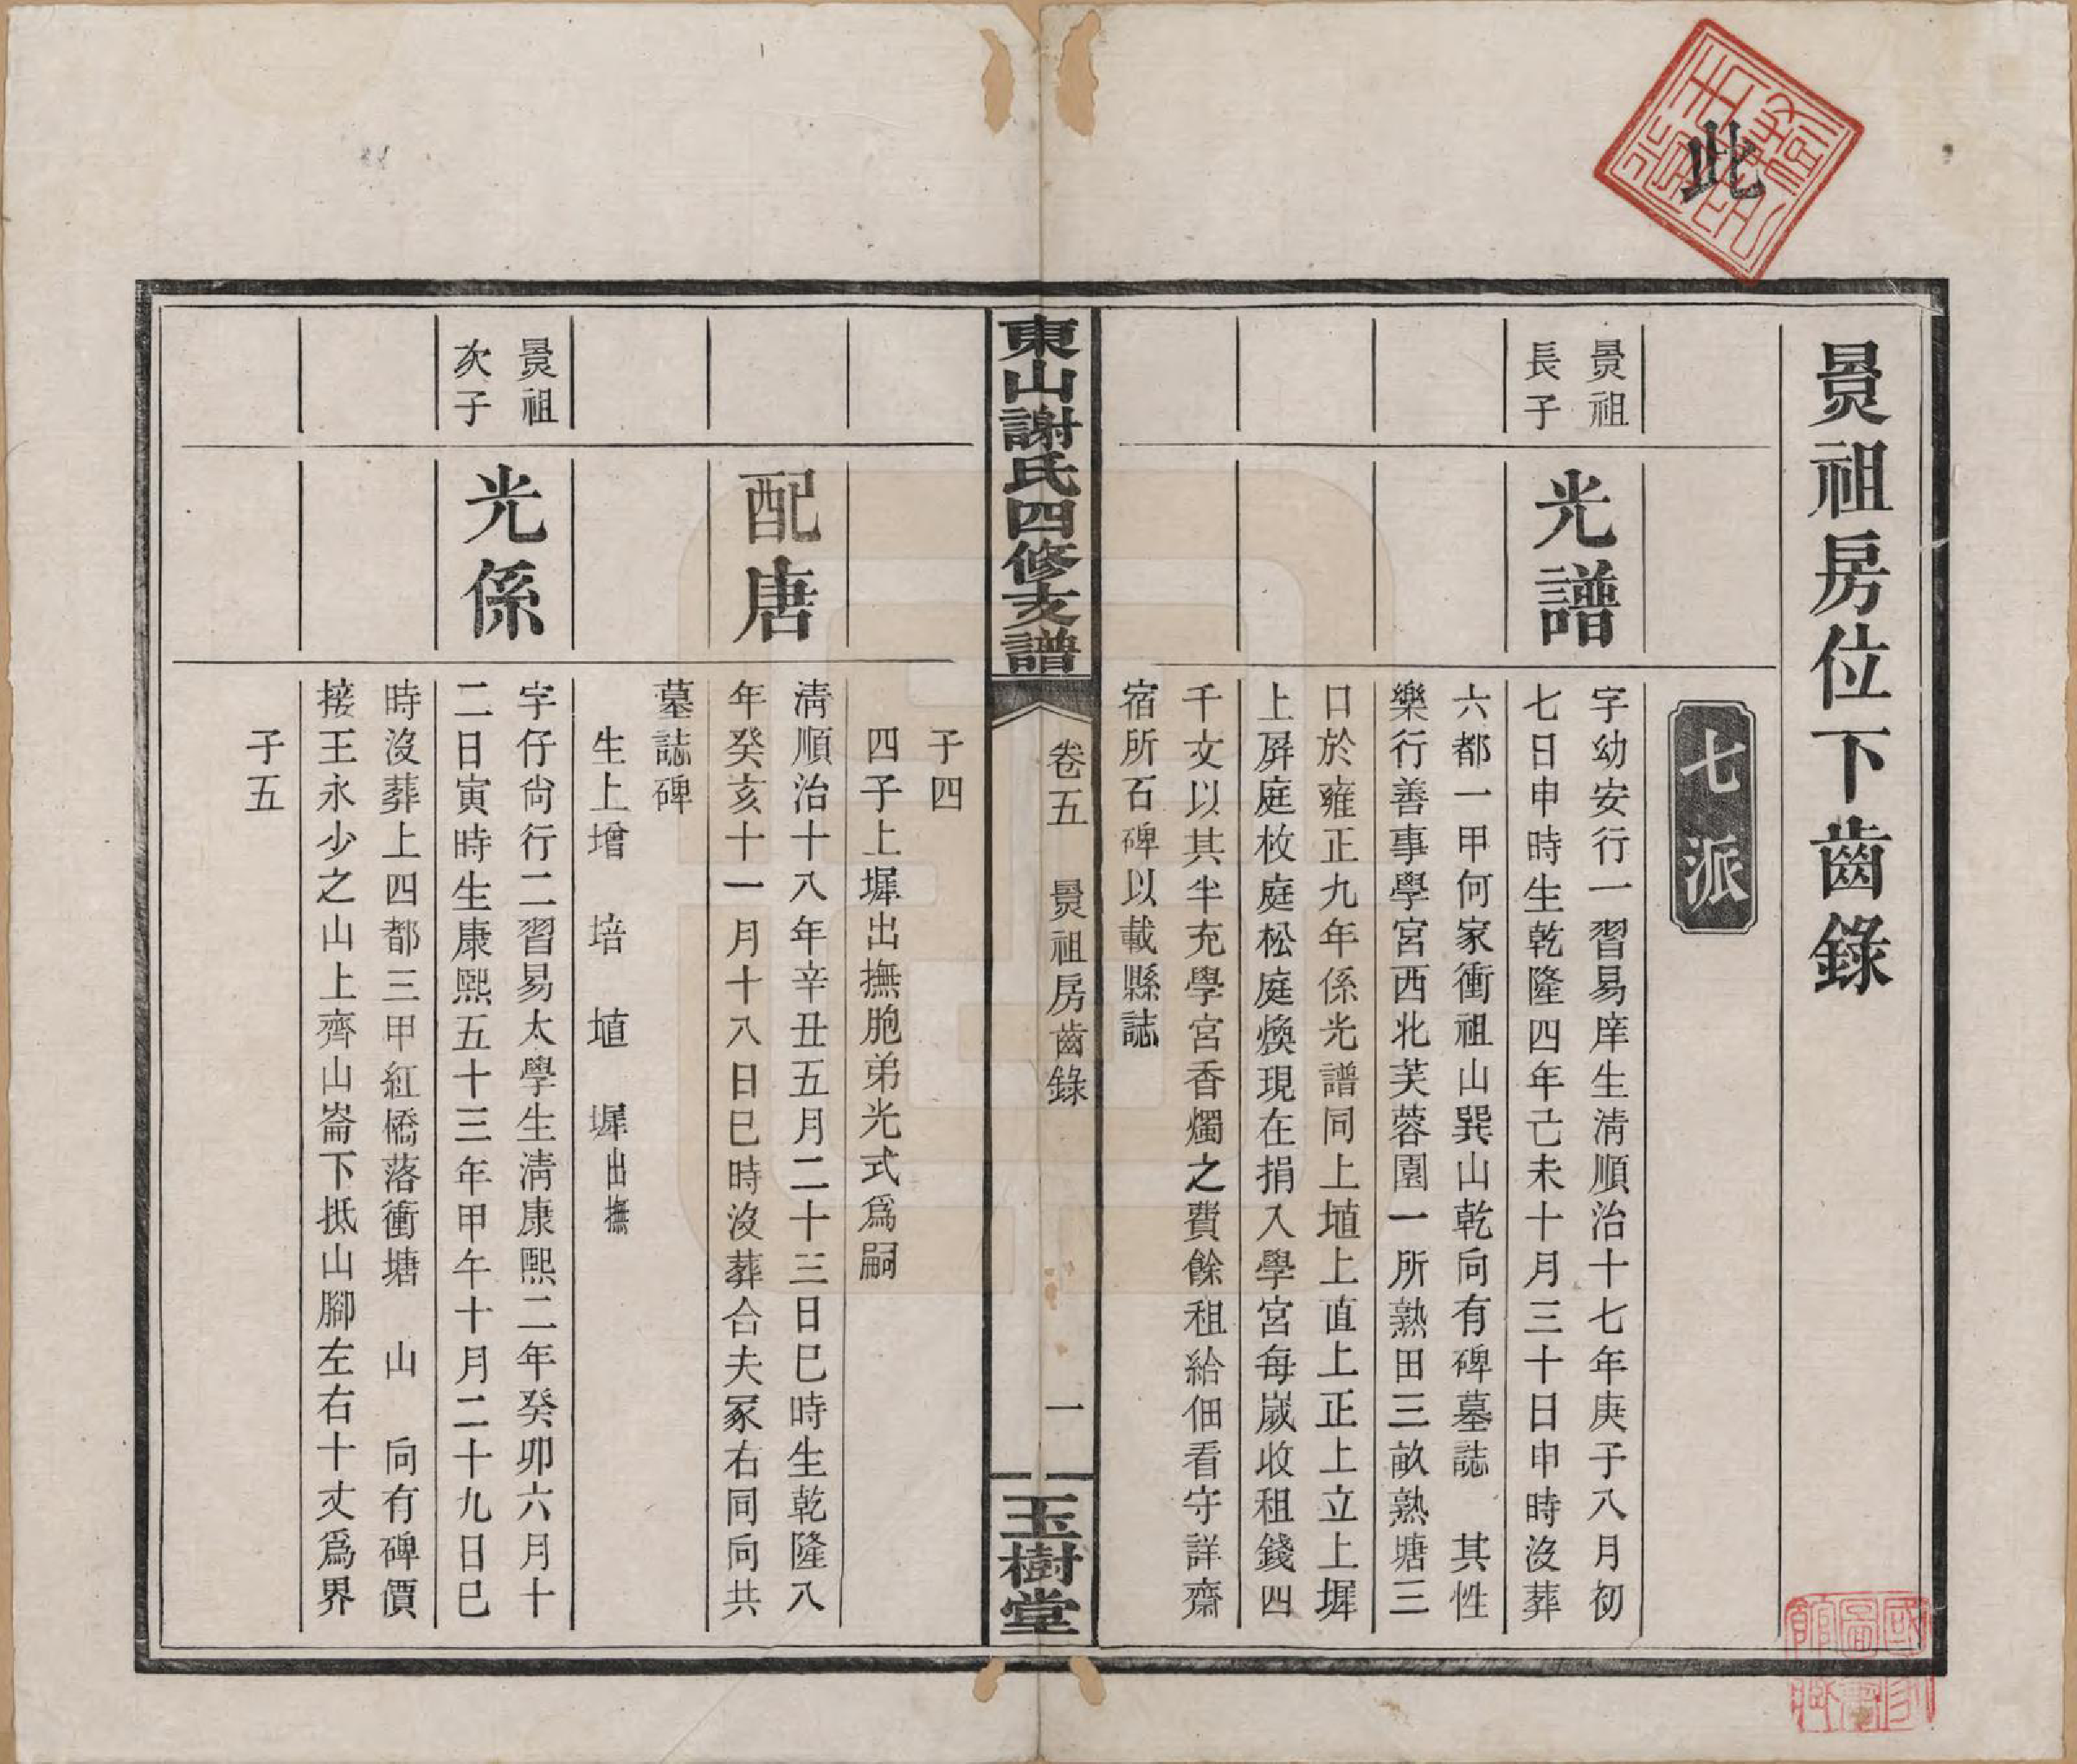 此
景祖房位下齒錄
七派
景祖
長子
光譜
字幼安行一習易庠生淸順治十七年庚子八月初
七日申時生乾隆四年己未十月三十日申時沒葬
六都一甲何家衝祖山巽山乾向有碑墓誌 其性
樂行善事學宮西北芙蓉園一所熟田三畝熟塘三
口於雍正九年係光譜同上埴上直上正上立上墀
上屛庭枚庭松庭煥現在捐入學宮每嵗收租錢四
千文以其半充學宮香燭之費餘租給佃看守詳齋
宿所石碑以載縣誌
東山謝氏四修支譜
卷五 景祖房齒錄 一
玉樹堂
子四
四子上墀出撫胞弟光式爲嗣
配唐
淸順治十八年辛丑五月二十三日巳時生乾隆八
年癸亥十一月十八日巳時沒葬合夫冢右同向共
墓誌碑
生上增 培 埴 墀出撫
景祖
次子
光係
字仔尙行二習易太學生淸康熙二年癸卯六月十
二日寅時生康熙五十三年甲午十月二十九日巳
時沒葬上四都三甲紅橋落衝塘 山 向有碑價
接王永少之山上齊山崙下抵山腳左右十丈爲界
子五